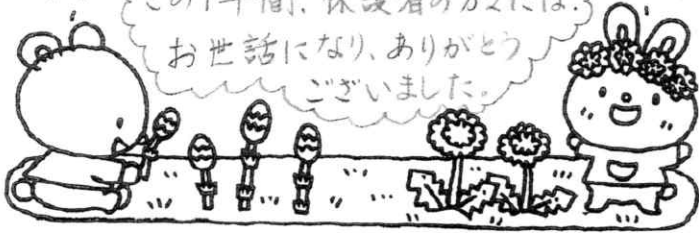 この1年間、保護者の方々には、
お世話になり、ありがとう
ございました。